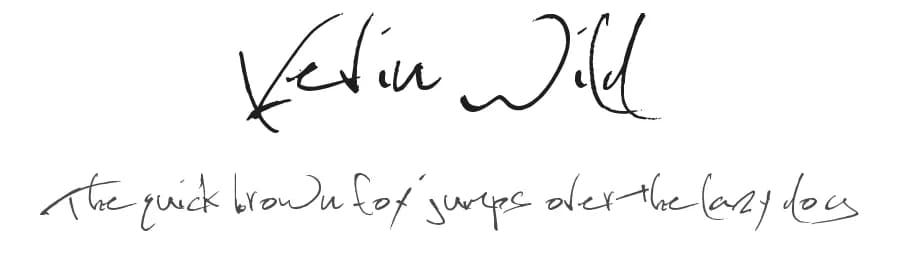 Kevin Wild
The quick brown fox jumps over the lazy dog